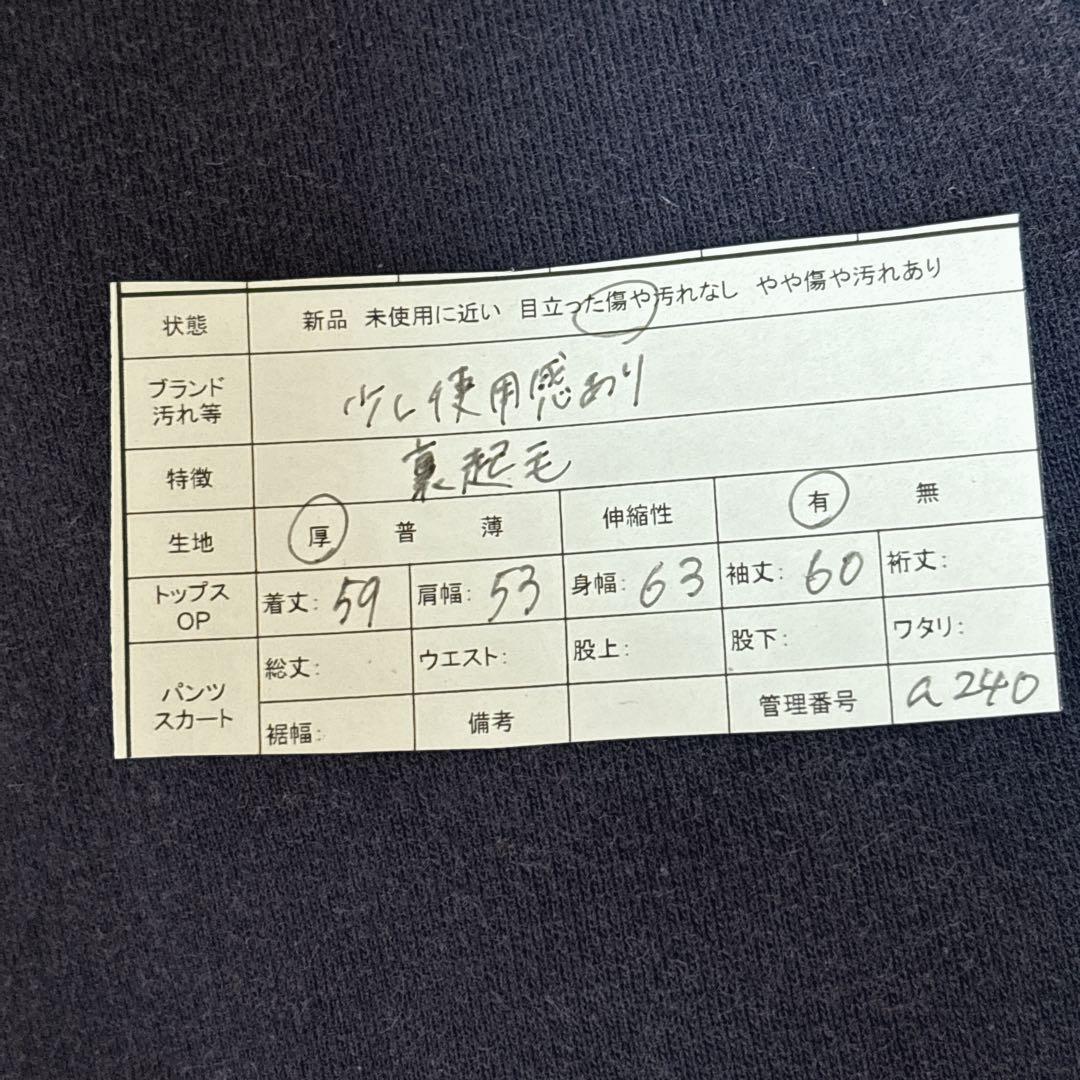 状態 新品 未使用に近い 目立った傷や汚れなし やや傷や汚れあり
ブランド
汚れ等 少し使用感あり
特徴 裏起毛
生地 厚 普 薄 伸縮性 有 無
トップス
OP 着丈: 59 肩幅: 53 身幅: 63 袖丈: 60 裄丈:
パンツ
スカート 総丈: ウエスト: 股上: 股下: ワタリ:
裾幅: 備考 管理番号 a240